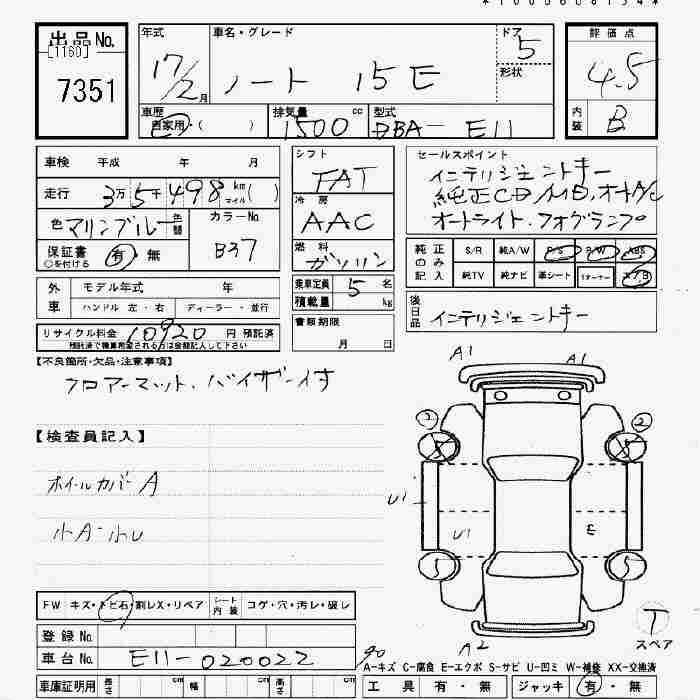 出品No.
[1160]
7351
年式 車名・グレード ドア 評価点
17/2月 ノート 15E 5 4.5
形状
車歴 排気量 cc 型式 内装
自家用・( ) 1500 DBA- E11 B
車検 平成 年 月
走行 3万5千498 km マイル( )
色 マリンブルー 色替 カラーNo B37
保証書 有・無
○を付ける
シフト FAT
冷房 AAC
燃料 ガソリン
乗車定員 5 名
積載量 kg
書類期限
月 日
セールスポイント
インテリジェントキー
純正CD/MD、オートA/C
オートライト、フォグランプ
純正のみ記入 S/R 純A/W P/S P/W ABS
純TV 純ナビ 革シート A/B
後日品 インテリジェントキー
外車 モデル年式 年
ハンドル 左・右 ディーラー・並行
リサイクル料金 10920 円 預託済
預託済で精算希望される方は金額記入して下さい
【不良箇所・欠品・注意事項】
フロアーマット、バイザー付
【検査員記入】
ホイールカバーA
小A・小U
A1 A1
2 2
5 5
U1
U1 E
5 5
A2
T
スペア
FW キズ・トビ石・割レX・リペア シート内装 コゲ・穴・汚レ・破レ
登録No.
車台No. E11-020022
車庫証明用 長さ cm 幅 cm 高さ cm
A-キズ C-腐食 E-エクボ S-サビ U-凹ミ W-補修 XX-交換済
工具 有・無 ジャッキ 有・無